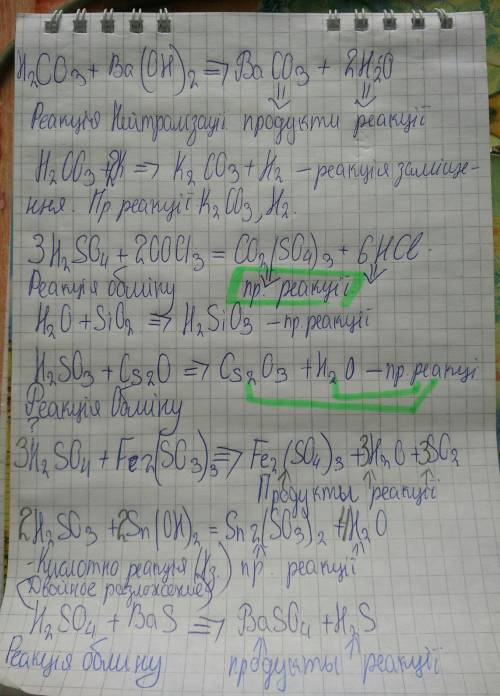 H₂CO₃ + Ba(OH)₂ => BaCO₃ + 2H₂O
Реакція Нейтралізації продукти реакції
H₂CO₃ + 2K => K₂CO₃ + H₂ – реакція заміще-
ння. Пр. реакції K₂CO₃, H₂.
3H₂SO₄ + 2COCl₃ = CO₂(SO₄)₃ + 6HCl.
Реакція обміну пр. реакції
H₂O + SiO₂ => H₂SiO₃ – пр. реакції
H₂SO₃ + Cs₂O => Cs₂O₃ + H₂O – пр. реакці
Реакція Обміну
?
3H₂SO₄ + Fe₂(SO₃)₃ => Fe₂(SO₄)₃ + 3H₂O + 3SO₂
Продукты реакції
2H₂SO₃ + 2Sn(OH)₂ = Sn₂(SO₃)₂ + 4H₂O
-Кислотно реакція (Нз.) пр. реакції
(Двойное разложение)
H₂SO₄ + BaS => BaSO₄ + H₂S
Реакція обміну продукты реакції